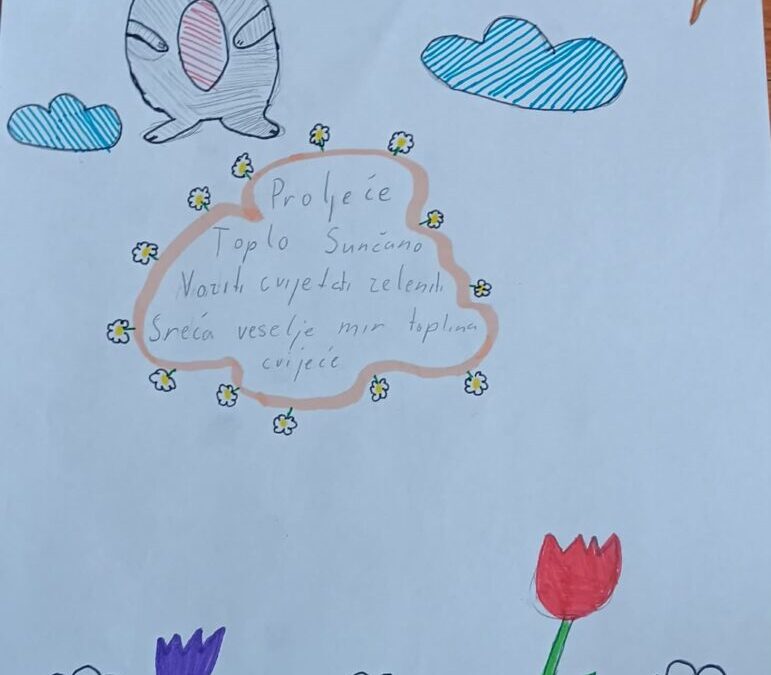 Proljeće
Toplo Sunčano
Voziti cvijetati zeleniti
Sreća veselje mir toplina
cvijeće